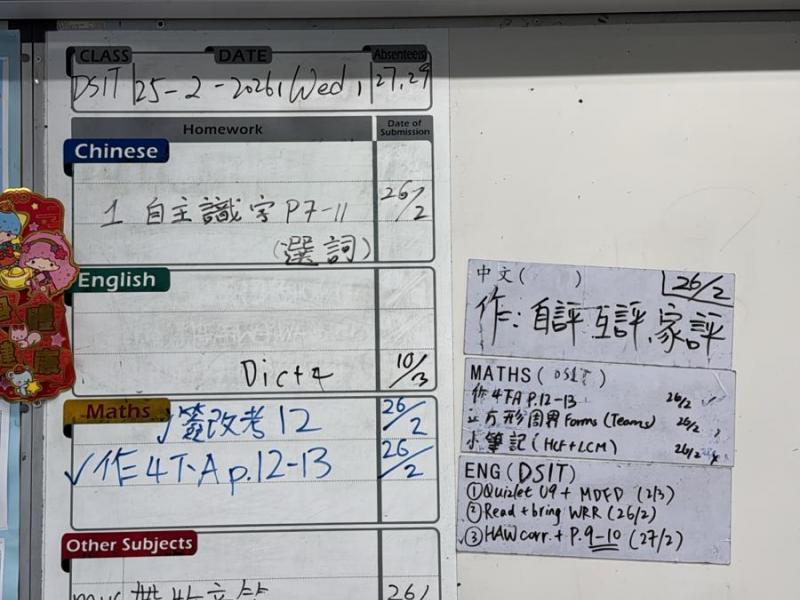 CLASS DATE Absentees
DSIT 25-2-2026, Wed, 27, 29
Homework Date of Submission
Chinese
1 自主識字 P7-11 26/2
(選詞)
English
Dict 4 10/3
Maths
√簽改考12 26/2
√作 4下A p.12-13 26/2
Other Subjects
26/
健康
中文( ) 26/2
作:自評、互評、家評
MATHS( DSIT )
作 4下A P.12-13 26/2
正方形周界 Forms (Teams) 26/2
小筆記 (HCF+LCM) 26/2
ENG (DSIT)
① Quizlet U9 + MDFD (2/3)
② Read + bring WRR (26/2)
③ HAW corr. + P.9-10 (27/2)